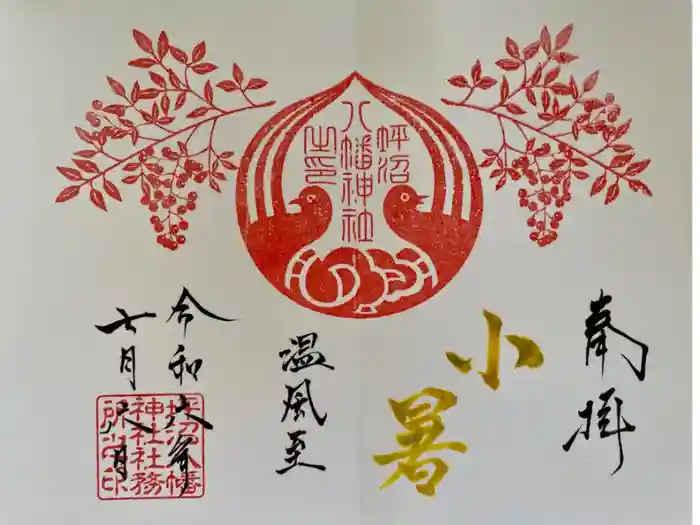 奉拝
小暑
温風至
坪沼
八幡神社
之印
令和六年
七月六日
坪沼八幡
神社社務
所之印